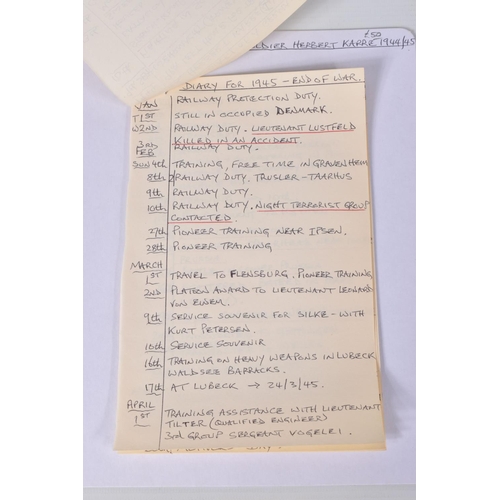 £50
HERBERT KARRE 1944/45
DIARY FOR 1945 - END OF WAR.
JAN RAILWAY PROTECTION DUTY.
T1ST STILL IN OCCUPIED DENMARK.
W2ND RAILWAY DUTY. LIEUTENANT LUSTFELD
KILLED IN AN ACCIDENT.
3RD FEB RAILWAY DUTY.
SUN 4th TRAINING, FREE TIME IN GRAVENHEIM
8th RAILWAY DUTY. TRUSLER-TAARHUS
9th RAILWAY DUTY.
10th RAILWAY DUTY. NIGHT TERRORIST GROUP
CONTACTED.
27th PIONEER TRAINING NEAR IPSEN.
28th PIONEER TRAINING
MARCH
1ST TRAVEL TO FLENSBURG. PIONEER TRAINING
2ND PLATOON AWARD TO LIEUTENANT LEONARD
VON EINEM.
9th SERVICE SOUVENIR FOR SILKE - WITH
KURT PETERSEN.
10th SERVICE SOUVENIR
16th TRAINING ON HEAVY WEAPONS IN LUBECK
WALDSEE BARRACKS.
17th AT LUBECK → 24/3/45.
APRIL
1ST TRAINING ASSISTANCE WITH LIEUTENANT
TILTER (QUALIFIED ENGINEER)
3rd GROUP SERGEANT VOGELEI.